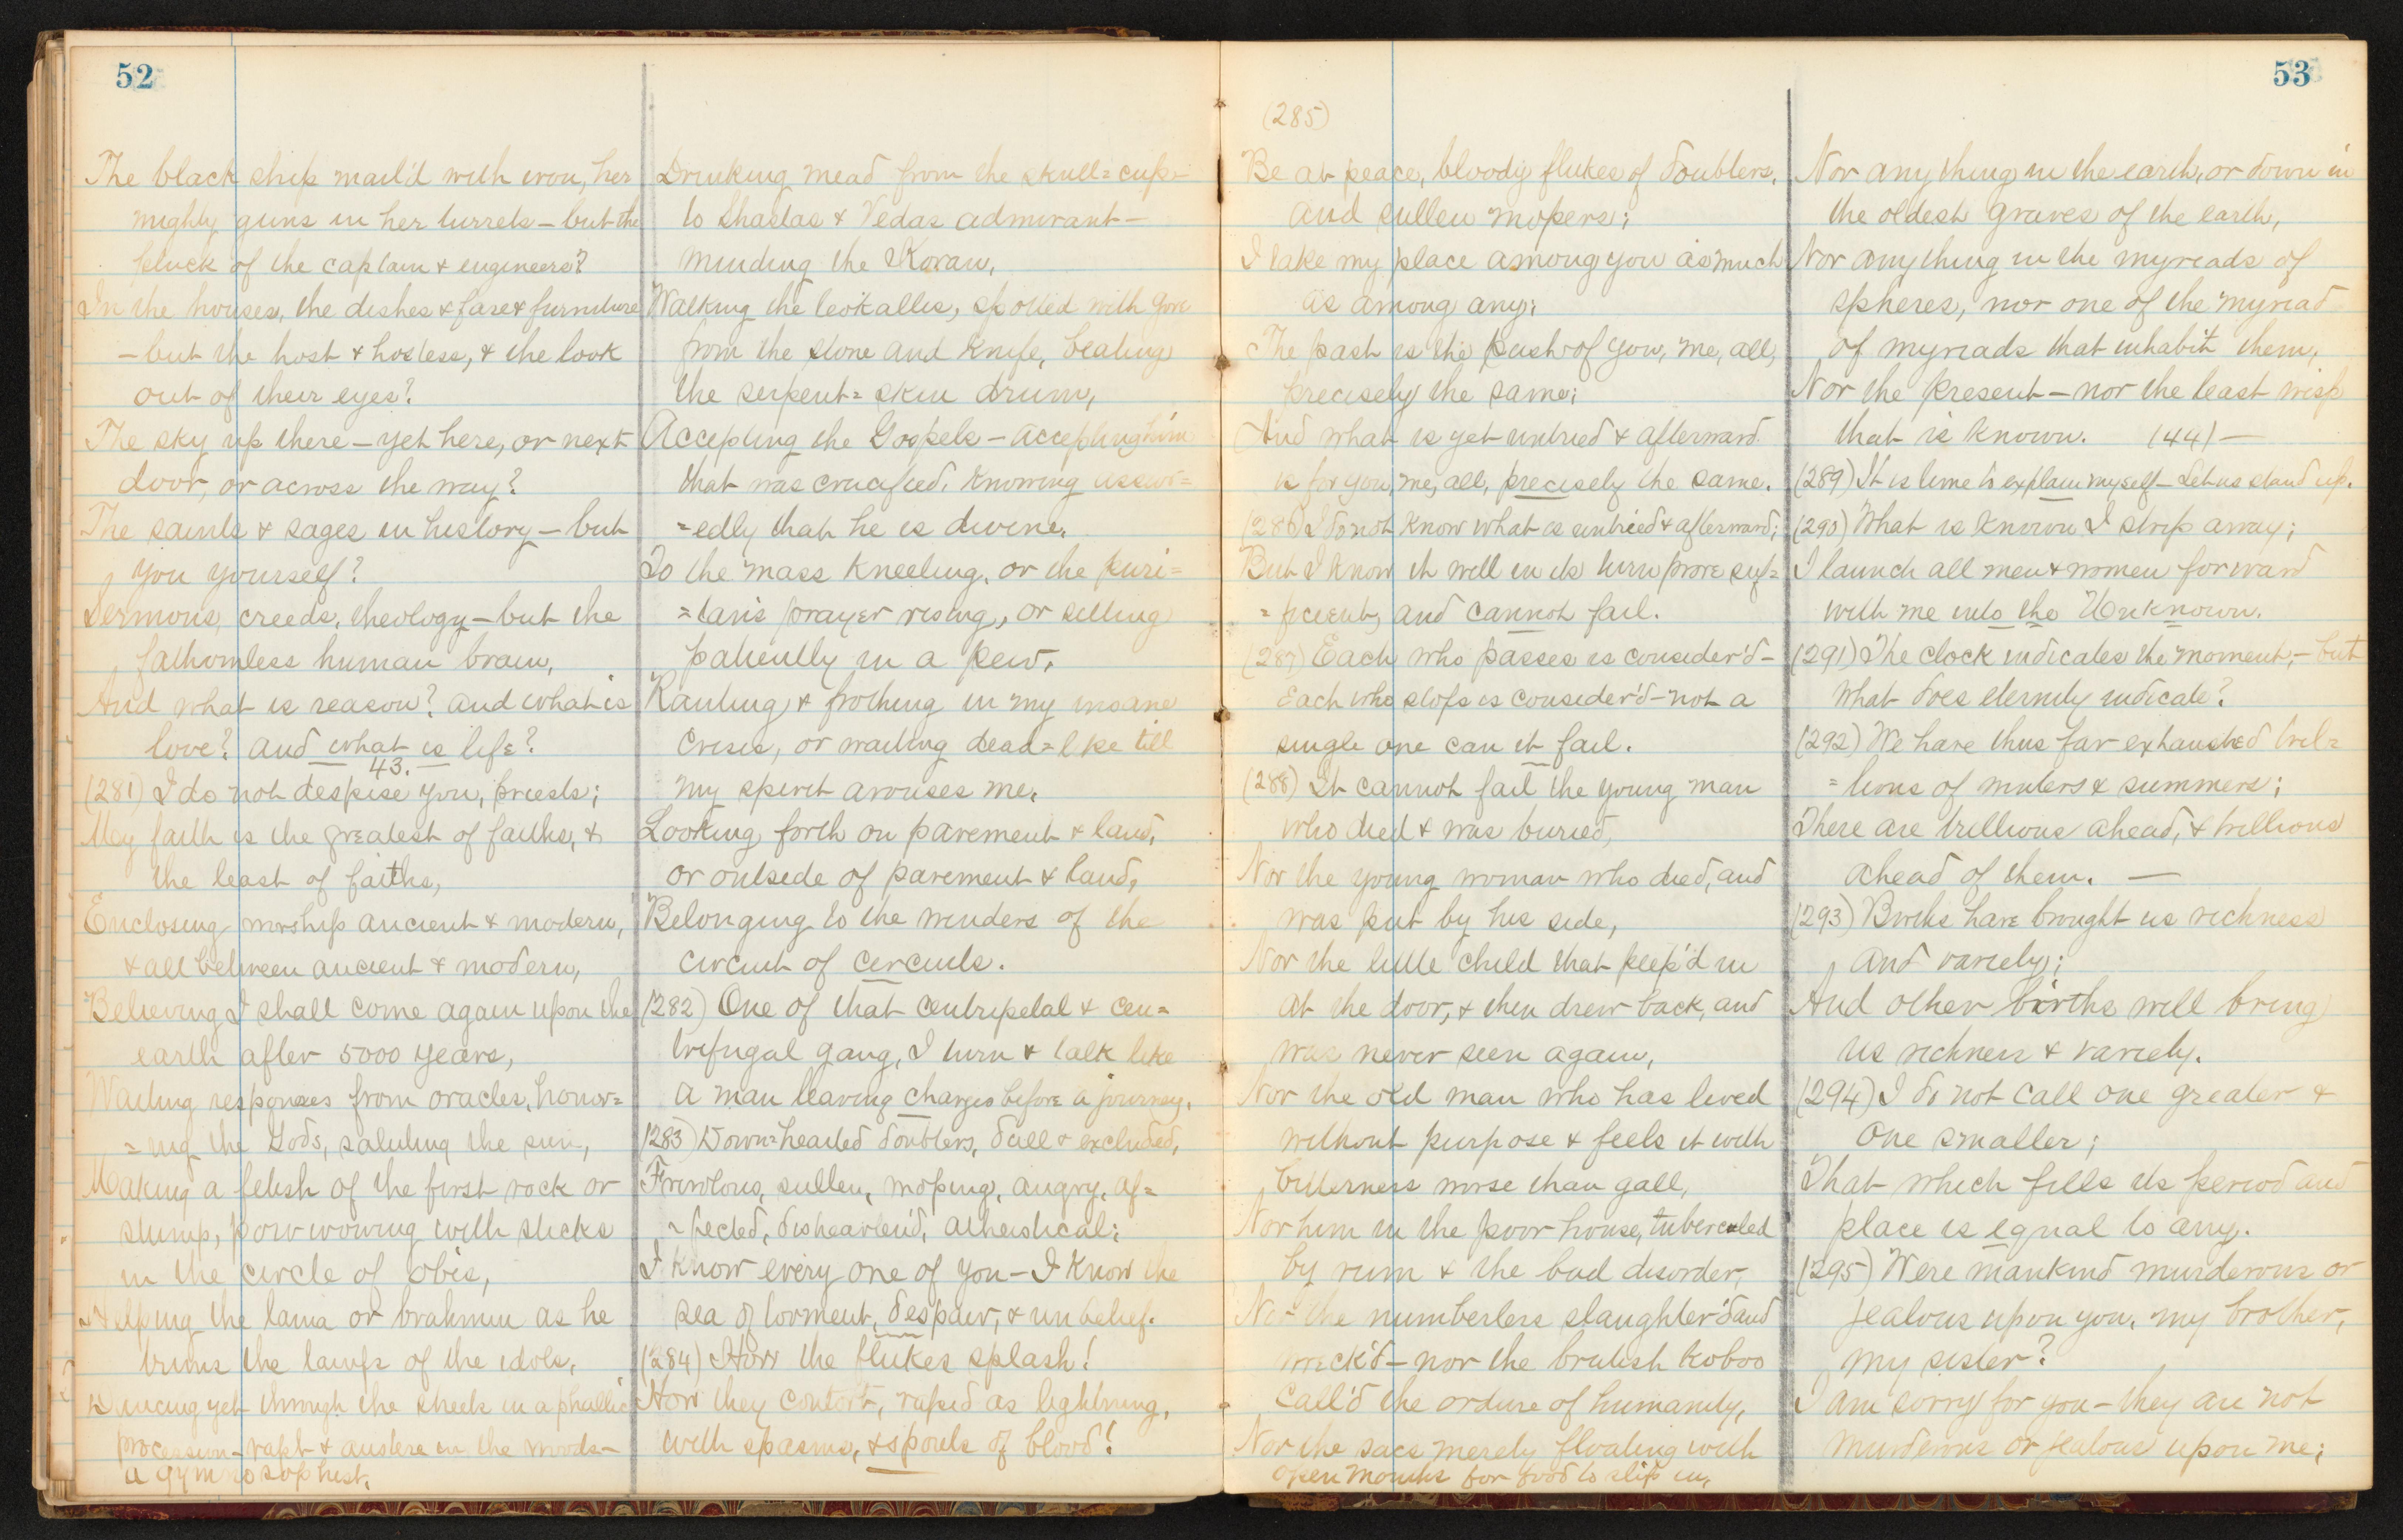 52
The black ship mail'd with iron, her
mighty guns in her turrets – but the
pluck of the captain & engineers?
In the houses, the dishes & fare & furniture
– but the host & hostess, & the look
out of their eyes?
The sky up there – yet here, or next
door, or across the way?
The saints & sages in history – but
you yourself?
Sermons, creeds, theology – but the
fathomless human brain,
And what is reason? and what is
love? and what is life?
43.
(281) I do not despise you, priests;
My faith is the greatest of faiths, &
the least of faiths,
Enclosing worship ancient & modern,
& all between ancient & modern,
Believing I shall come again upon the
earth after 5000 years,
Waiting responses from oracles, honor=
=ing the Gods, saluting the sun,
Making a fetish of the first rock or
stump, powwowing with sticks
in the circle of obis,
Helping the lama or brahmin as he
trims the lamps of the idols,
Dancing yet through the streets in a phallic
procession – rapt & austere in the woods –
a gymnosophist,
Drinking mead from the skull=cup –
to Shastas & Vedas admirant –
minding the Koran,
Walking the teokallis, spotted with gore
from the stone and knife, beating
the serpent=skin drum,
Accepting the Gospels – accepting him
that was crucified, knowing assur=
=edly that he is divine,
To the mass kneeling, or the puri=
=tan's prayer rising, or sitting
patiently in a pew,
Ranting & frothing in my insane
crisis, or waiting dead=like till
my spirit arouses me,
Looking forth on pavement & land,
or outside of pavement & land,
Belonging to the winders of the
circuit of circuits.
(282) One of that centripetal & cen=
trifugal gang, I turn & talk like
a man leaving charges before a journey.
(283) Down=hearted doubters, dull & excluded,
Frivolous, sullen, moping, angry, af=
=fected, dishearten'd, atheistical;
I know every one of you – I know the
sea of torment, despair, & unbelief.
(284) How the flukes splash!
How they contort, rapid as lightning,
with spasms, & spouts of blood!
53
(285)
Be at peace, bloody flukes of doubters,
and sullen mopers;
I take my place among you as much
as among any;
The past is the push of you, me, all,
precisely the same;
And what is yet untried & afterward
is for you, me, all, precisely the same.
(286) I do not know what is untried & afterward;
But I know it will in its turn prove suf=
=ficient, and cannot fail.
(287) Each who passes is consider'd –
Each who stops is consider'd – not a
single one can it fail.
(288) It cannot fail the young man
who died & was buried,
Nor the young woman who died, and
was put by his side,
Nor the little child that peep'd in
at the door, & then drew back, and
was never seen again,
Nor the old man who has lived
without purpose & feels it with
bitterness worse than gall,
Nor him in the poor house, tubercled
by rum & the bad disorder,
Nor the numberless slaughter'd and
wreck'd – nor the brutish koboo
call'd the ordure of humanity,
Nor the sacs merely floating with
open mouths for food to slip in,
Nor any thing in the earth, or down in
the oldest graves of the earth,
Nor any thing in the myriads of
spheres, nor one of the myriad
of myriads that inhabit them,
Nor the present – nor the least wisp
that is known. (44) –
(289) It is time to explain myself – Let us stand up.
(290) What is known I strip away;
I launch all men & women forward
with me into the Unknown.
(291) The clock indicates the moment, – but
what does eternity indicate?
(292) We have thus far exhausted tril=
=lions of winters & summers;
There are trillions ahead, & trillions
ahead of them. –
(293) Births have brought us richness
and variety;
And other births will bring
us richness & variety.
(294) I do not call one greater &
one smaller;
That which fills its period and
place is equal to any.
(295) Were mankind murderous or
jealous upon you, my brother,
my sister?
I am sorry for you – they are not
murderous or jealous upon me;